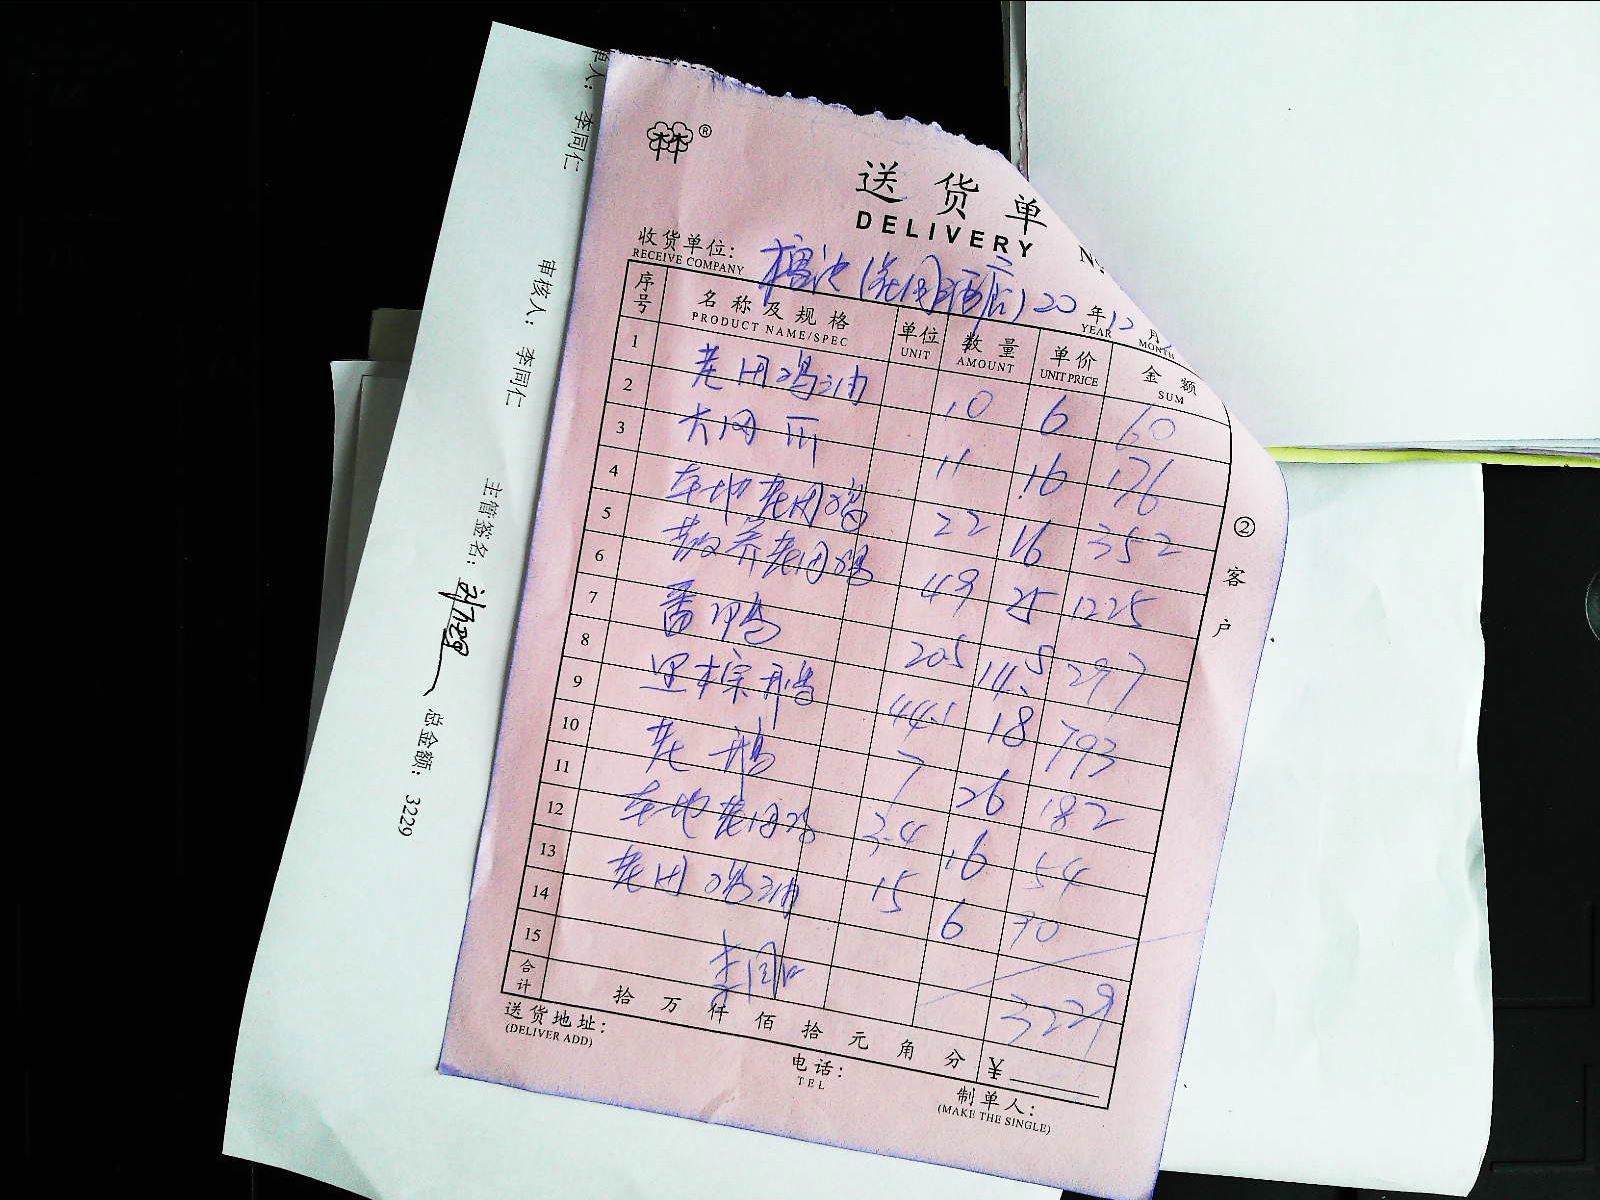 单人：李同仁
审核人：李同仁
主管签名：
总金额：3229
林®
送货单
DELIVERY
收货单位：
RECEIVE COMPANY
20 年 12 月
YEAR MONTH
序号 名称及规格 单位 数量 单价 金额
PRODUCT NAME/SPEC UNIT AMOUNT UNIT PRICE SUM
1 老母鸡油 10 6 60
2 11 16 176
3 本地老母鸡 22 16 352
4 散养老母鸡 49 25 1225
5 番鸭 20.5 14.5 297
6 黑棕鹅 44.1 18 793
7 老鹅 7 26 182
8 本地老母鸡 3.4 16 54
9 老母鸡油 15 6 90
10
11
12
13
14
15
李同仁 3229
合计 拾 万 仟 佰 拾 元 角 分 ¥
送货地址：
(DELIVER ADD)
电话：
TEL
制单人：
(MAKE THE SINGLE)
② 客户